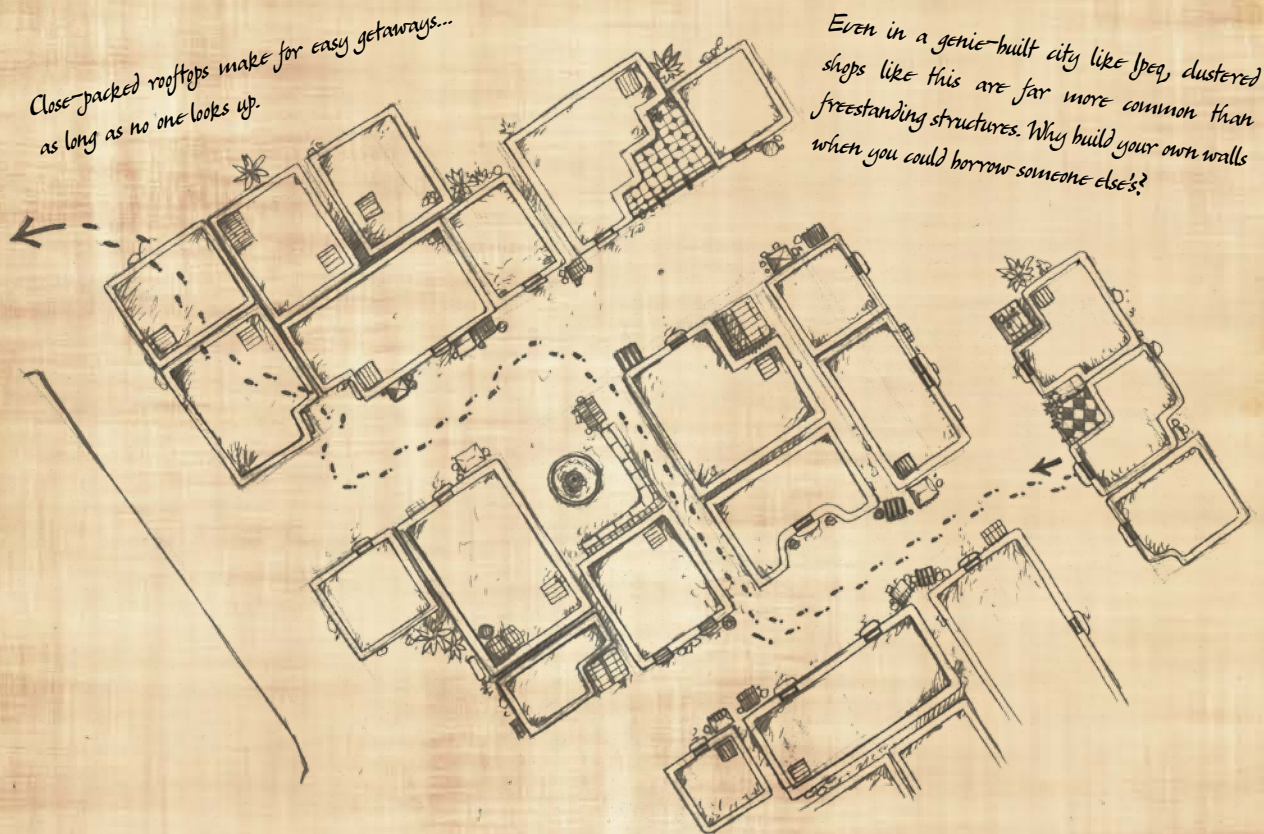 Close-packed rooftops make for easy getaways...
as long as no one looks up.
Even in a genie-built city like Ipeq, clustered
shops like this are far more common than
freestanding structures. Why build your own walls
when you could borrow someone else's?